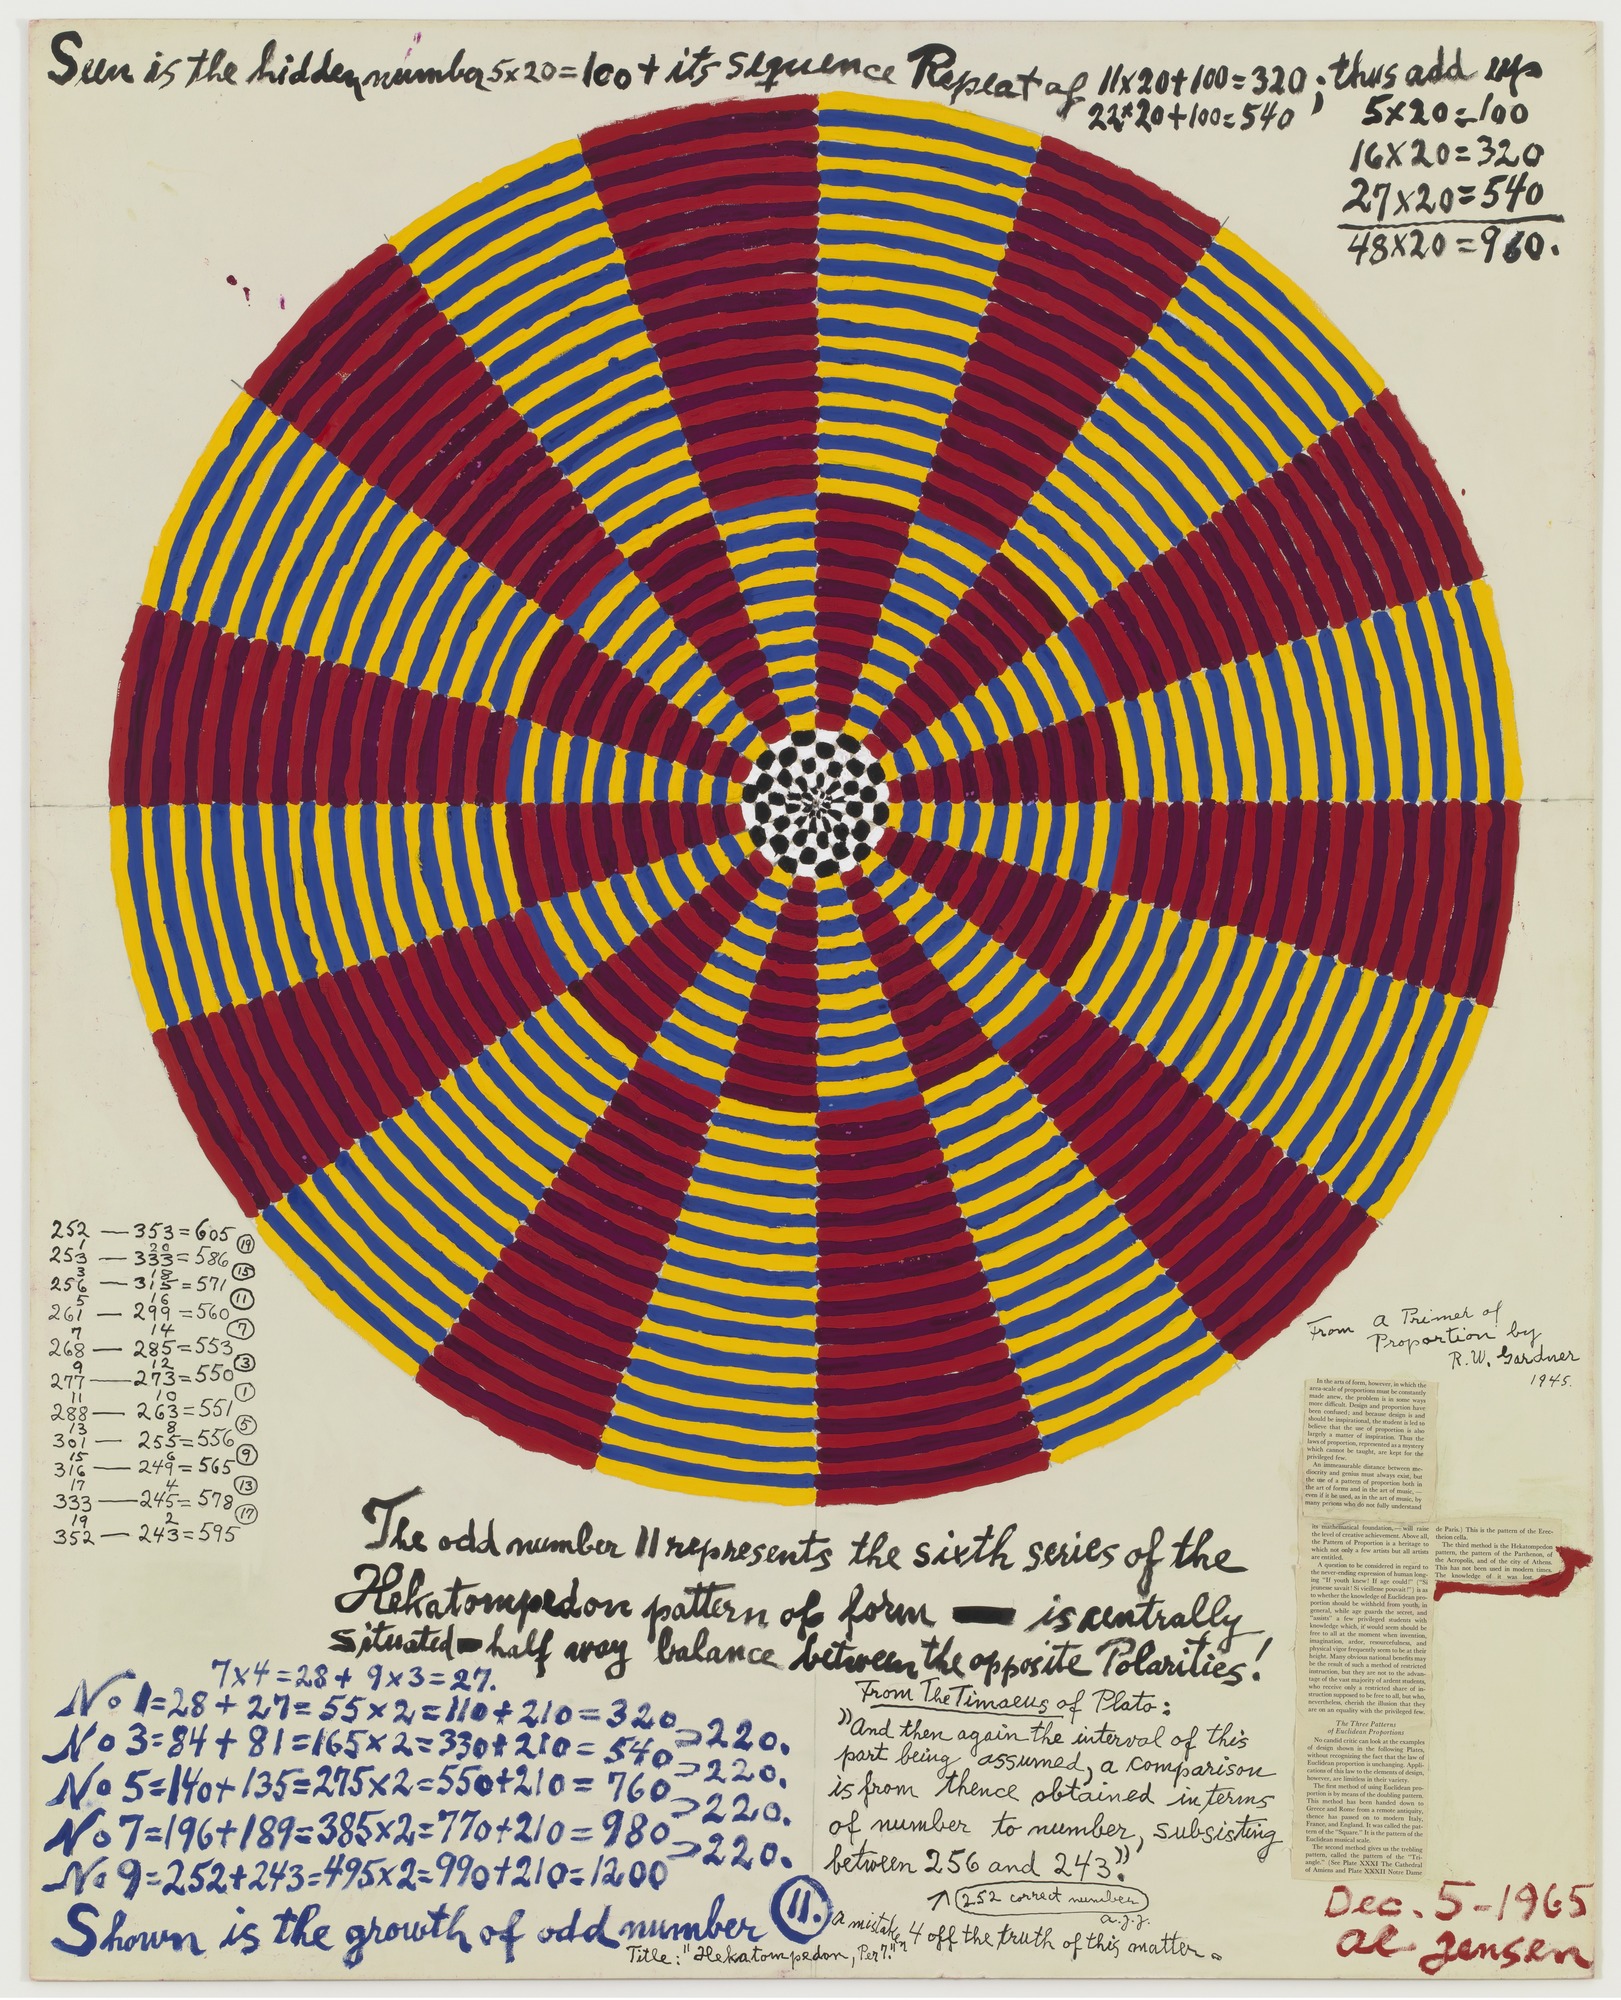 Seen is the hidden number 5x20=100 + its sequence Repeat of 11x20+100=320; thus add up
22x20+100=540
5x20=100
16x20=320
27x20=540
48x20=960.
252 — 353=605
1 20 19
253 — 333=586
3 18 15
256 — 315=571
5 16 11
261 — 299=560
7 14 7
268 — 285=553
9 12 3
277 — 273=550
11 10 1
288 — 263=551
13 8 5
301 — 255=556
15 6 9
316 — 249=565
17 4 13
333 — 245=578
19 2 17
352 — 243=595
From a Primer of
Proportion by
R.W. Gardner
1945.
In the arts of form, however, in which the
area-scale of proportions must be constantly
made anew, the problem is in some ways
more difficult. Design and proportion have
been confused; and because design is and
should be inspirational, the student is led to
believe that the use of proportion is also
largely a matter of inspiration. Thus the
laws of proportion, represented as a mystery
which cannot be taught, are kept for the
privileged few.
An immeasurable distance between me-
diocrity and genius must always exist, but
the use of a pattern of proportion both in
the art of forms and in the art of music, —
even if it be used, as in the art of music, by
many persons who do not fully understand
its mathematical foundation, — will raise
the level of creative achievement. Above all,
the Pattern of Proportion is a heritage to
which not only a few artists but all artists
are entitled.
A question to be considered in regard to
the never-ending expression of human long-
ing "If youth knew! If age could!" ("Si
jeunesse savait! Si vieillesse pouvait!") is as
to whether the knowledge of Euclidean pro-
portion should be withheld from youth, in
general, while age guards the secret, and
"assists" a few privileged students with
knowledge which, if would seem should be
free to all at the moment when invention,
imagination, ardor, resourcefulness, and
physical vigor frequently seem to be at their
height. Many obvious national benefits may
be the result of such a method of restricted
instruction, but they are not to the advan-
tage of the vast majority of ardent students,
who receive only a restricted share of in-
struction supposed to be free to all, but who,
nevertheless, cherish the illusion that they
are on an equality with the privileged few.
The Three Patterns
of Euclidean Proportions
No candid critic can look at the examples
of design shown in the following Plates,
without recognizing the fact that the law of
Euclidean proportion is unchanging. Appli-
cations of this law to the elements of design,
however, are limitless in their variety.
The first method of using Euclidean pro-
portion is by means of the doubling pattern.
This method has been handed down to
Greece and Rome from a remote antiquity,
thence has passed on to modern Italy,
France, and England. It was called the pat-
tern of the "Square." It is the pattern of the
Euclidean musical scale.
The second method gives us the trebling
pattern, called the pattern of the "Tri-
angle." (See Plate XXXI The Cathedral
of Amiens and Plate XXXII Notre Dame
de Paris.) This is the pattern of the Erec-
theion cella.
The third method is the Hekatompedon
pattern, the pattern of the Parthenon, of
the Acropolis, and of the city of Athens.
This has not been used in modern times.
The knowledge of it was lost.
The odd number 11 represents the sixth series of the
Hekatompedon pattern of form — is centrally
situated — half way balance between the opposite Polarities!
7x4=28+ 9x3=27.
No 1=28+27=55x2=110+210=320
No 3=84+81=165x2=330+210=540 >220.
No 5=140+135=275x2=550+210=760 >220.
No 7=196+189=385x2=770+210=980 >220.
No 9=252+243=495x2=990+210=1200 >220.
Shown is the growth of odd number 11.
From The Timaeus of Plato:
"And then again the interval of this
part being assumed, a comparison
is from thence obtained in terms
of number to number, subsisting
between 256 and 243."
252 correct number
a.j.j.
a mistaken 4 off the truth of this matter.
Title: "Hekatompedon, Per 7."
Dec. 5-1965
Al Jensen